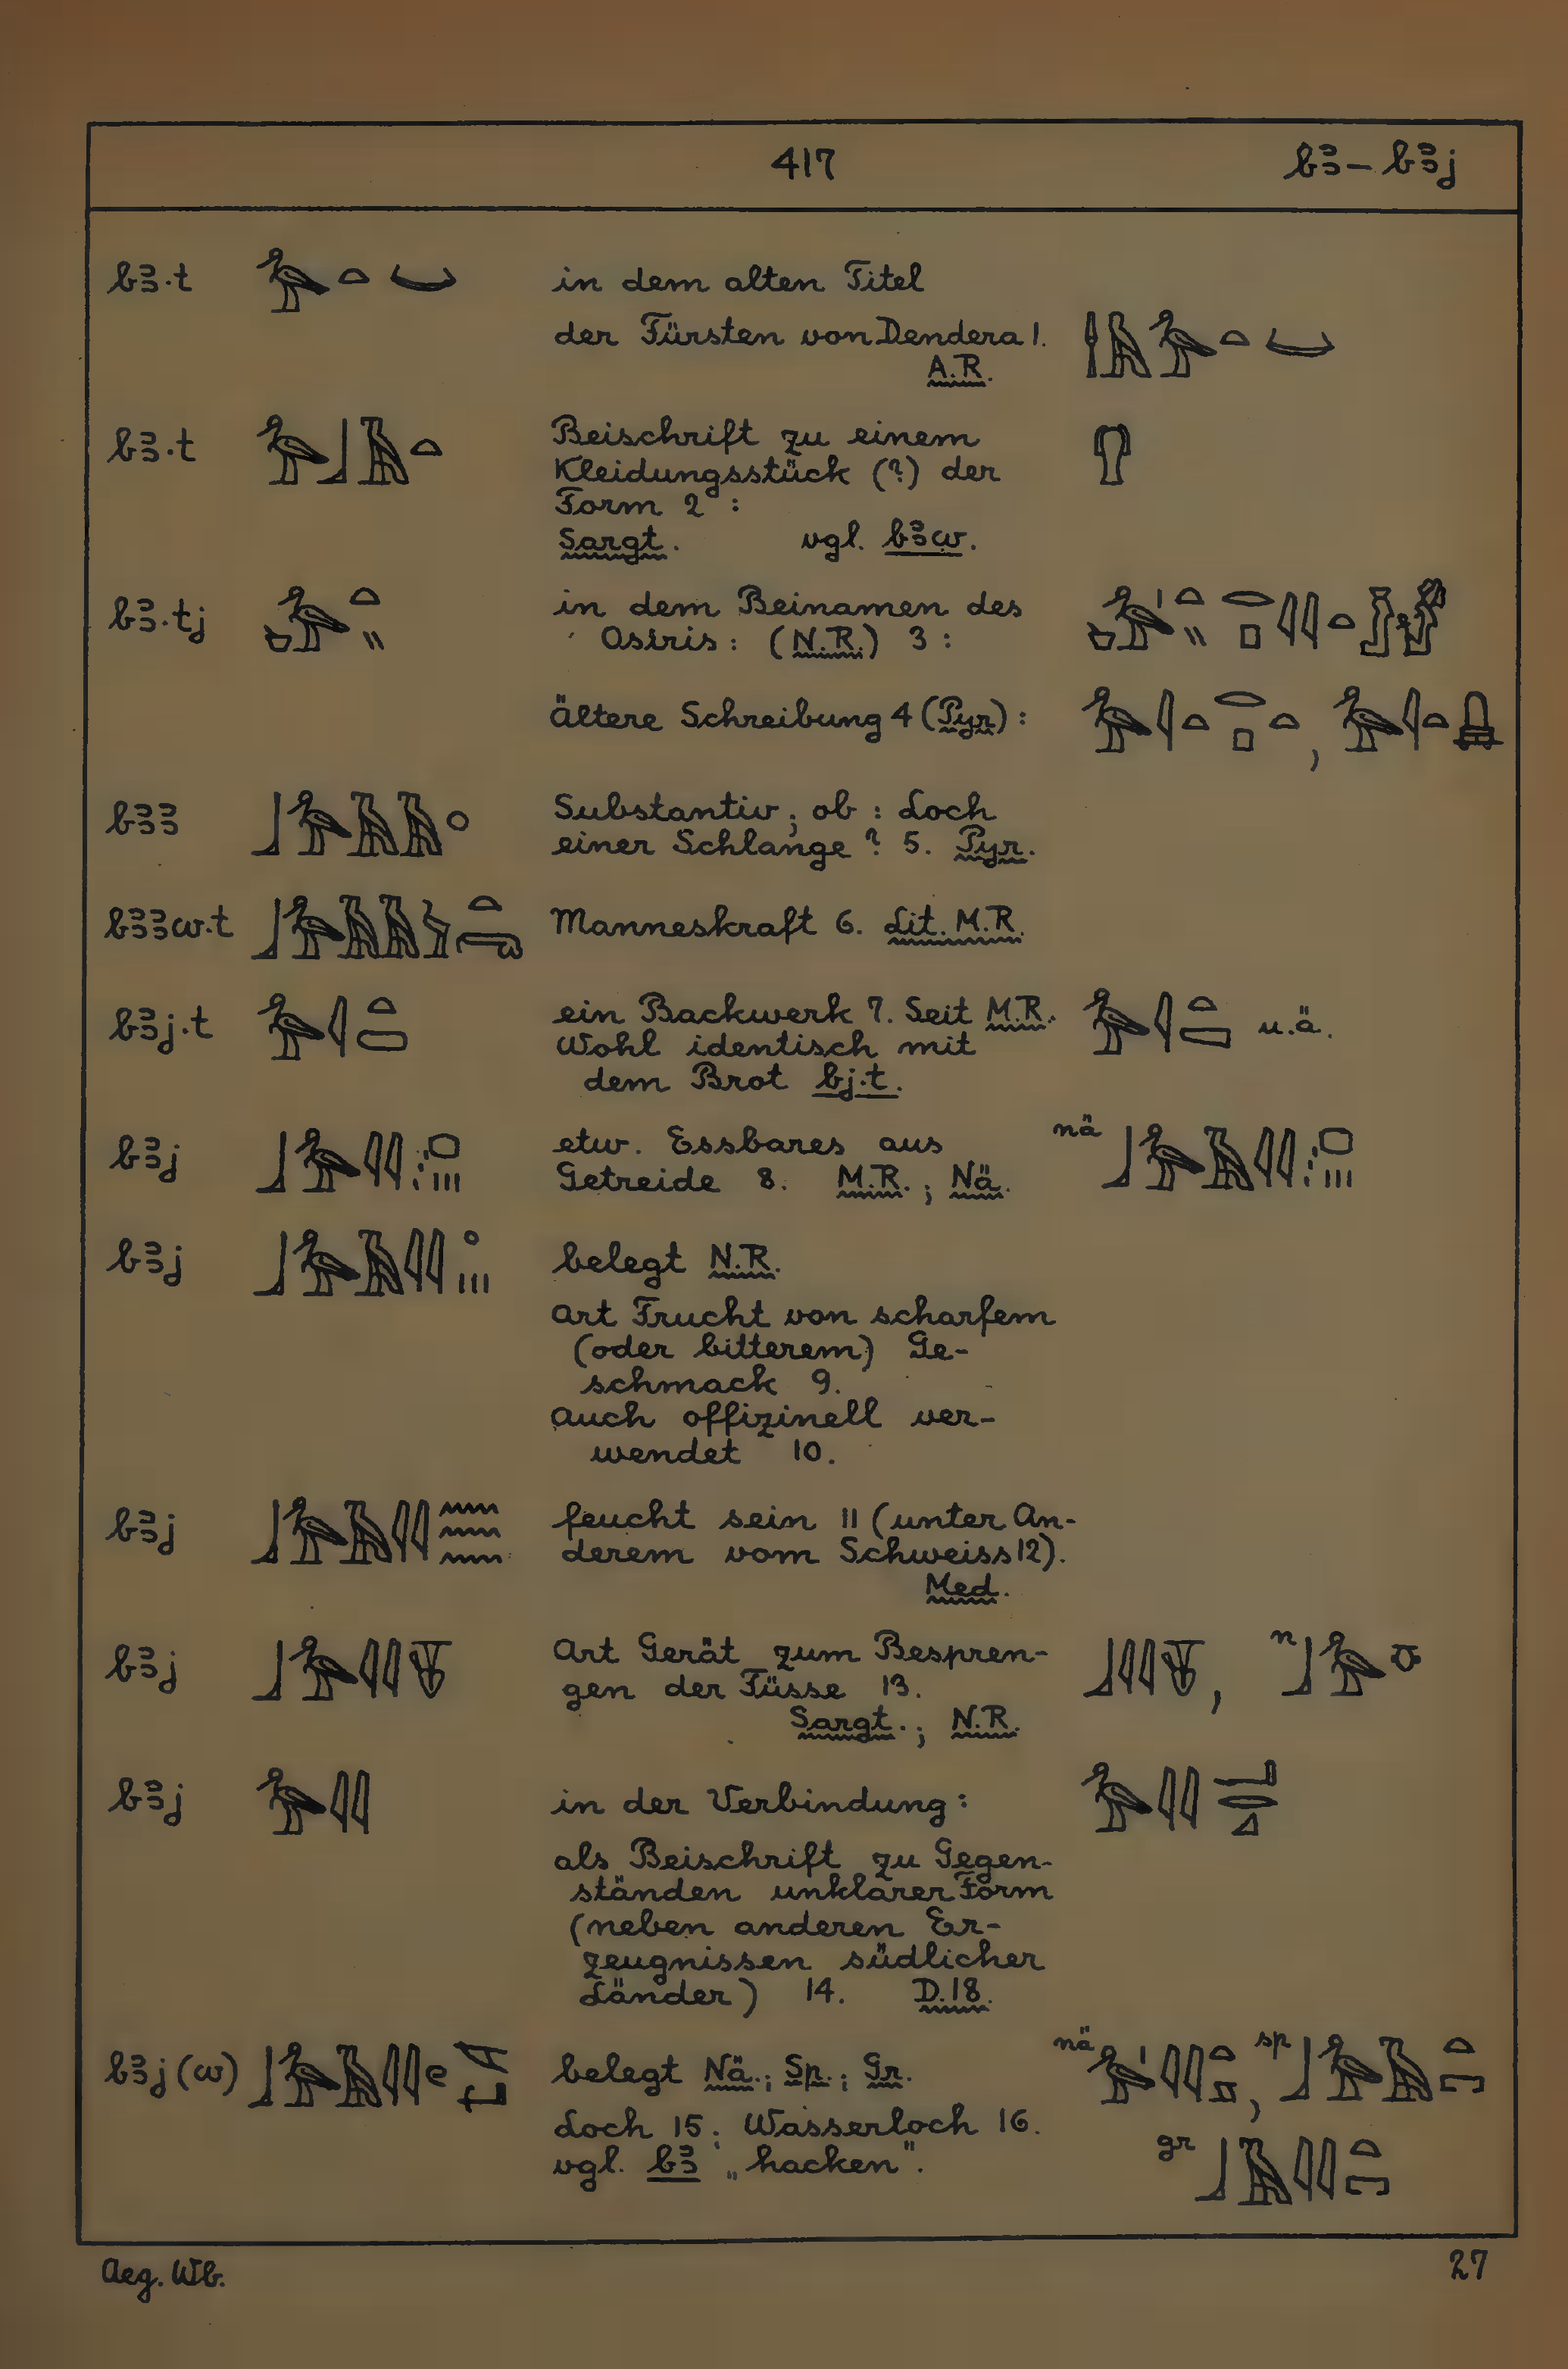 417 bꜣ – bꜣj
bꜣ.t 𓅡𓏏 in dem alten Titel
der Fürsten von Dendera 1. 𓅡𓏏
A.R.
bꜣ.t 𓅡𓃀𓄿𓏏 Beischrift zu einem
Kleidungsstück (?) der
Form 2 :
Sargt. vgl. bꜣw.
bꜣ.tj 𓅡𓏏𓏭 in dem Beinamen des
Osiris : (N.R.) 3 :
ältere Schreibung 4 (Pyr) : 𓅡𓇋𓏏𓂋𓊪𓏏 , 𓅡𓇋𓏏
bꜣꜣ 𓃀𓅡𓄿𓄿 Substantiv ; ob : Loch
einer Schlange ? 5. Pyr.
bꜣꜣw.t 𓃀𓅡𓄿𓄿𓅱𓏏𓂺 Manneskraft 6. Lit. M.R.
bꜣj.t 𓅡𓇋𓏏 ein Backwerk 7. Seit M.R. 𓅡𓇋𓏏 u.ä.
Wohl identisch mit
dem Brot bj.t.
bꜣj 𓃀𓅡𓇋𓇋 etw. Essbares aus nä 𓃀𓅡𓄿𓇋𓇋
Getreide 8. M.R. ; Nä.
bꜣj 𓃀𓅡𓄿𓇋𓇋𓏥 belegt N.R.
Art Frucht von scharfem
(oder bitterem) Ge-
schmack 9.
Auch offizinell ver-
wendet 10.
bꜣj 𓃀𓅡𓄿𓇋𓇋𓈗 feucht sein 11 (unter An-
derem vom Schweiss 12).
Med.
bꜣj 𓃀𓅡𓇋𓇋 Art Gerät zum Bespren- 𓃀𓇋𓇋 , n 𓃀𓅡
gen der Füsse 13.
Sargt. ; N.R.
bꜣj 𓅡𓇋𓇋 in der Verbindung : 𓅡𓇋𓇋𓂝𓂋𓈎
als Beischrift zu Gegen-
ständen unklarer Form
(neben anderen Er-
zeugnissen südlicher
Länder) 14. D.18.
bꜣj (w) 𓃀𓅡𓄿𓇋𓇋 belegt Nä. ; Sp. ; Gr. nä 𓅡𓏤𓇋𓇋𓏏 , sp 𓃀𓅡𓄿𓏏𓉐
Loch 15 ; Wasserloch 16.
vgl. bꜣ „hacken". gr 𓃀𓄿𓇋𓇋𓏏𓉐
Aeg. Wb. 27